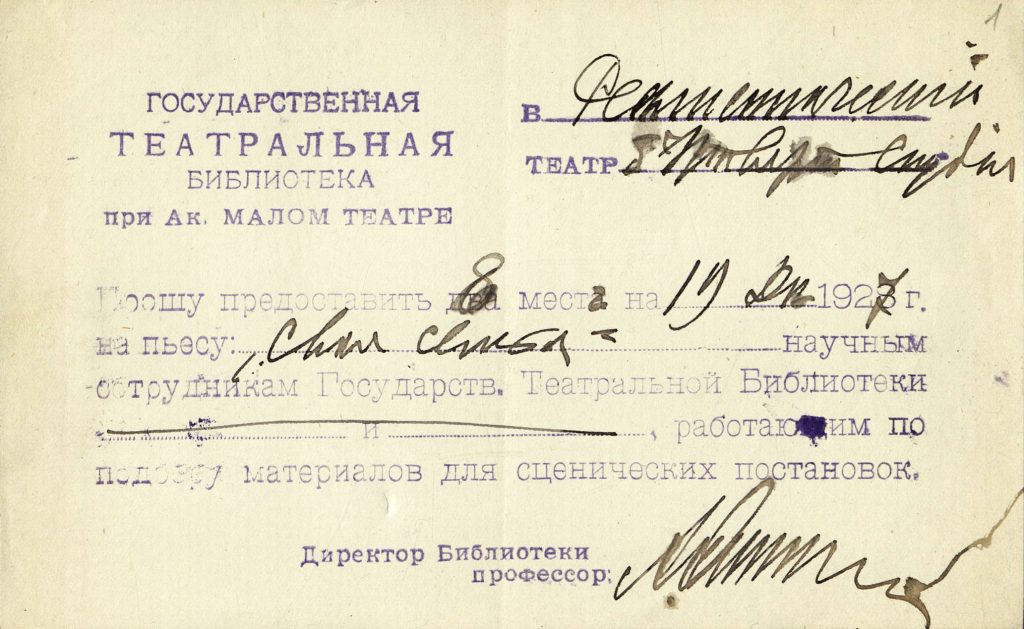 1
ГОСУДАРСТВЕННАЯ
ТЕАТРАЛЬНАЯ
БИБЛИОТЕКА
при Ак. МАЛОМ ТЕАТРЕ
В Реалистический
ТЕАТР
Прошу предоставить 8 места на 19 Дек 1927 г.
на пьесу: „Своя семья" научным
сотрудникам Государств. Театральной Библиотеки
и , работающим по
подбору материалов для сценических постановок.
Директор Библиотеки
профессор: